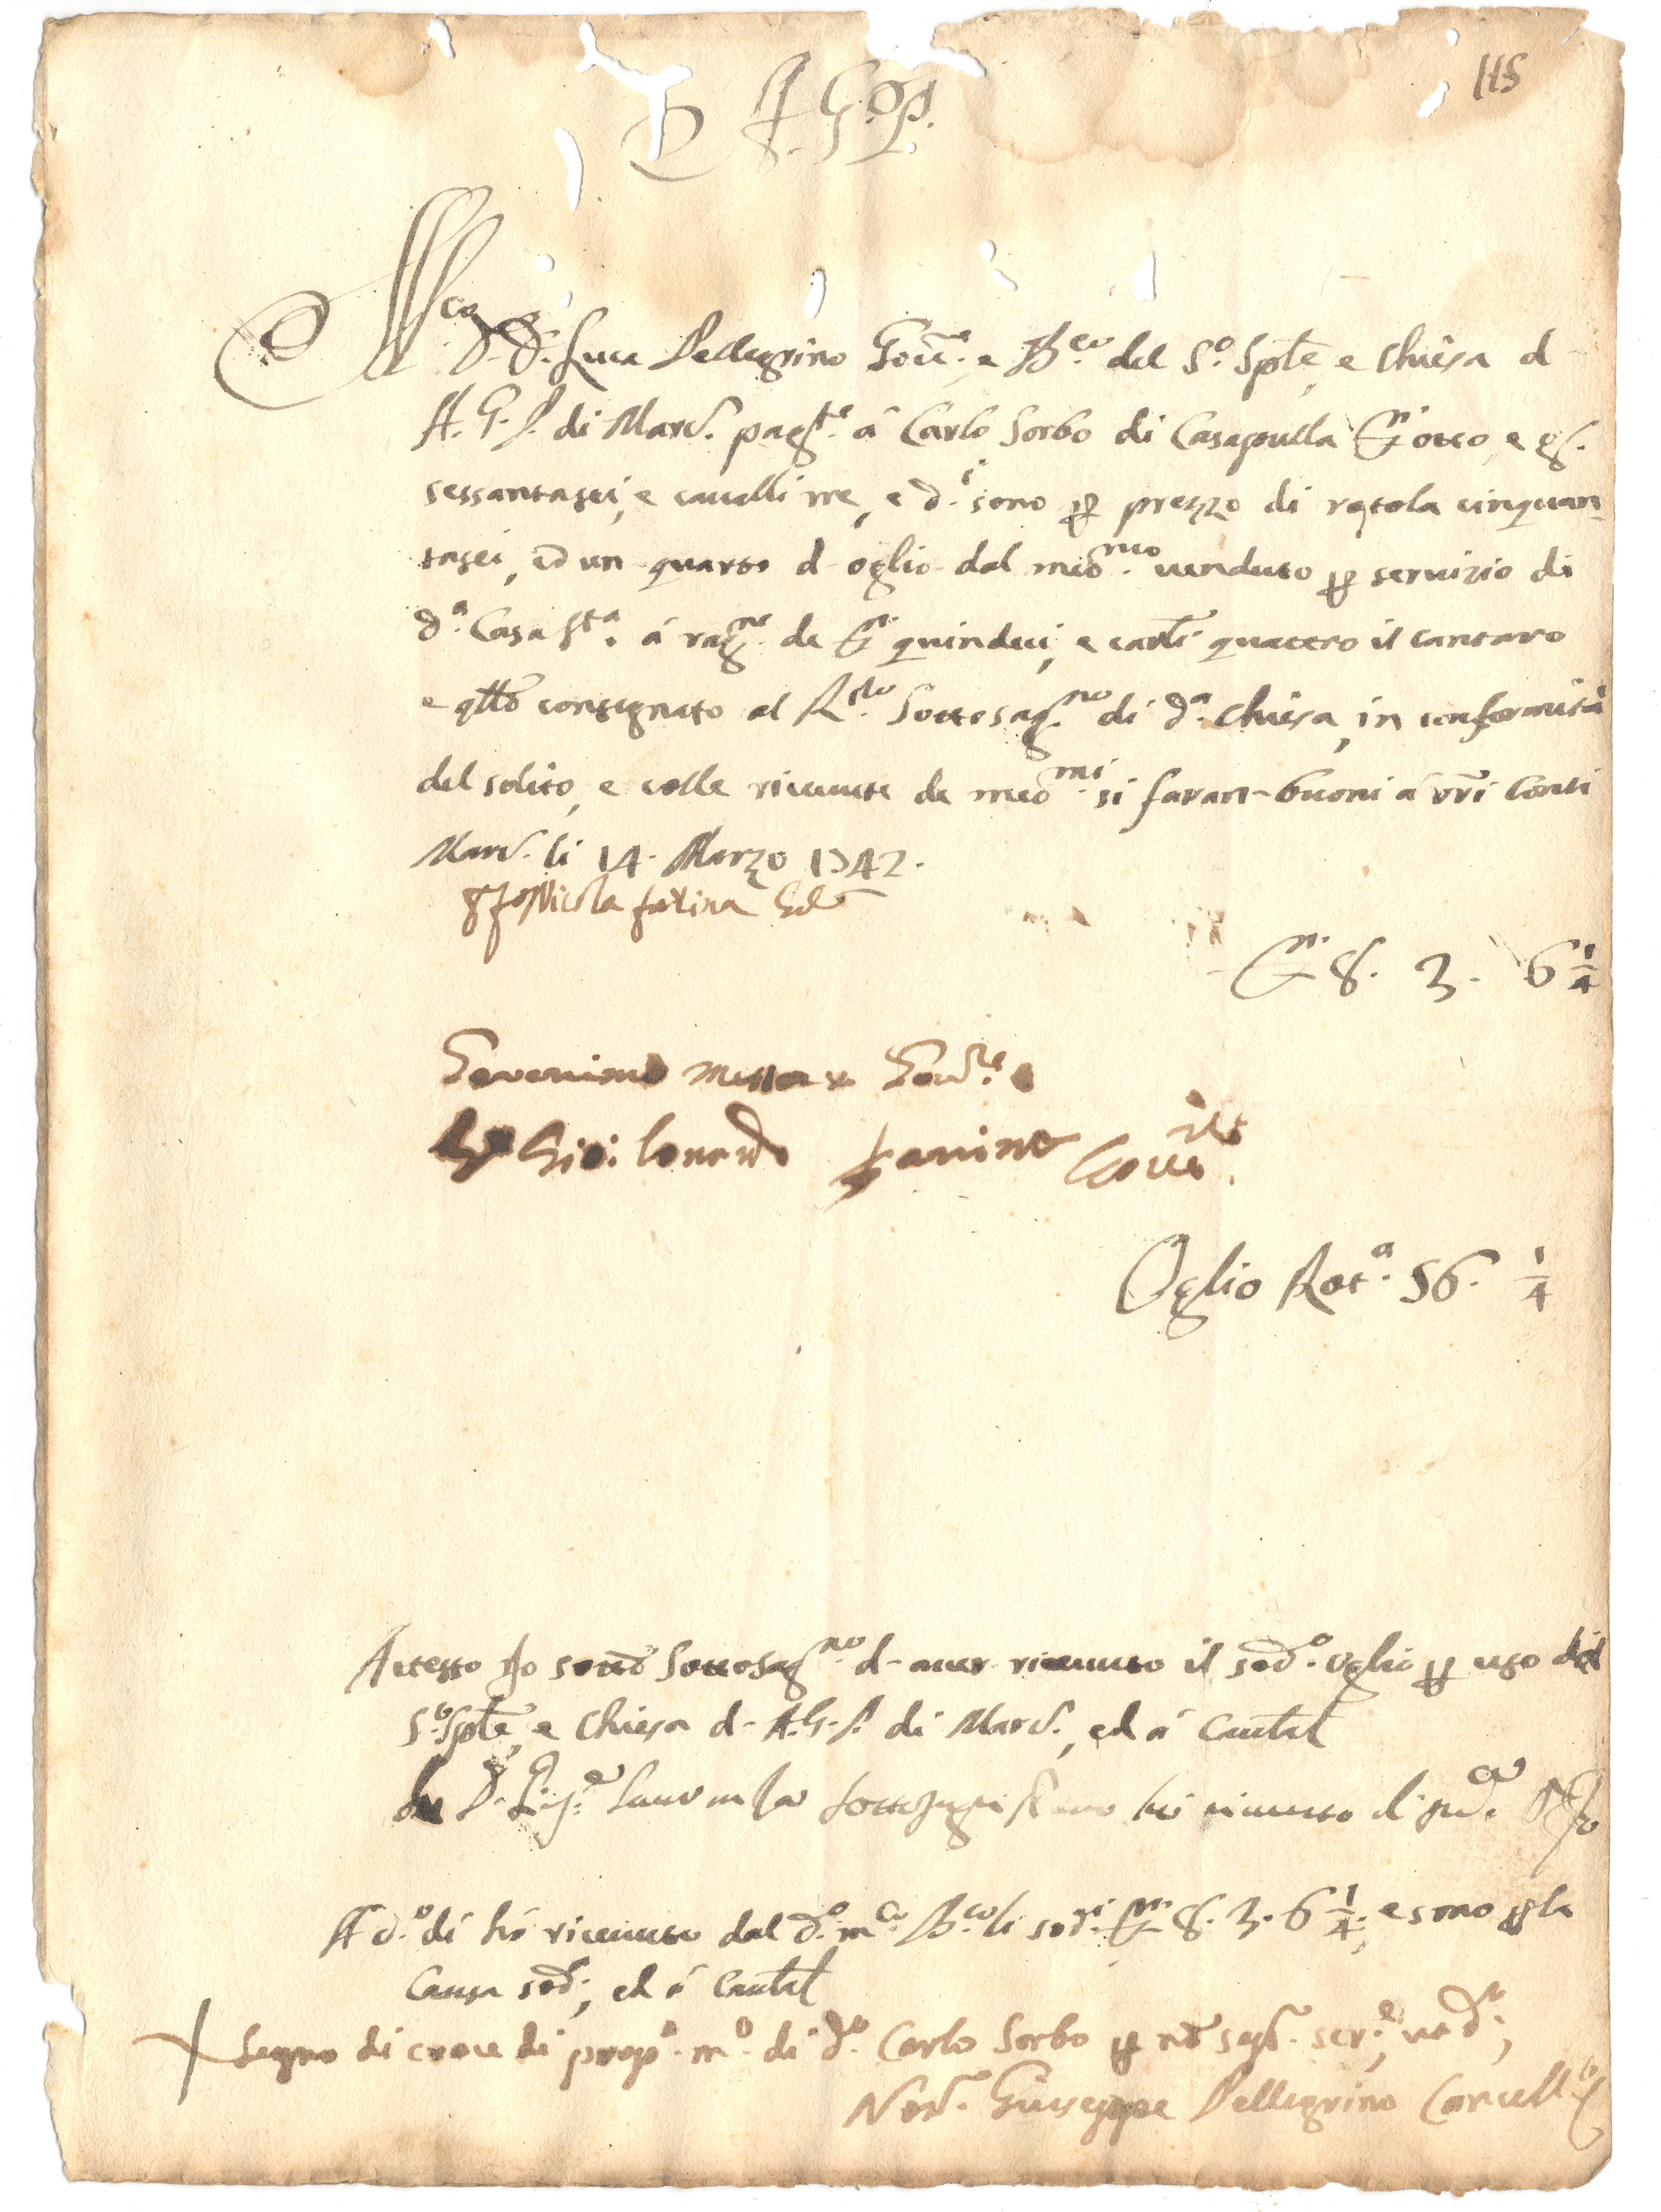 115
A. G. P.
M.co D. D. Luca Pellegrino Gov.e, e B.co del S.o Sple, e Chiesa d-
A. G. P. di Marc. pag.te à Carlo Sorbo di Casapulla D.ni otto, e g.
sessantasei, e cavalli tre, e d.i sono per prezzo di rotola cinquan
tasei, ed un quarto d-oglio dal med.mo venduto per servizio di
d.a Casa St.a à rag.ne de D.ni quindeci, e carl.i quattro il cantaro
e qllo consegnato al R.do Sottosag.no di d.a Chiesa, in conformità
del solito, e colle ricevute de med.mi si faran-buoni à vri Conti
Marc. li 14. Marzo 1742.
Nicola
D.ni 8. 3. 6 1/4
Gov.re
Gov.re
Oglio Rot.a 56. 1/4
Attesto Io sotto Sottosag.no d-aver ricevuto il sod.o oglio per uso del
S.o Sple, e Chiesa d-A. G. P. di Marc., ed à Cautel
A d.o dì hò ricevuto dal d.o m.co B.co li sod.i D.ni 8. 3. 6 1/4; e sono per la
Causa sod.a, ed à Cautel
Segno di croce di prop.a m.o di d.o Carlo Sorbo per nō sap. scr.e, ut d.r;
Not. Giuseppe Pellegrino Cancell.o